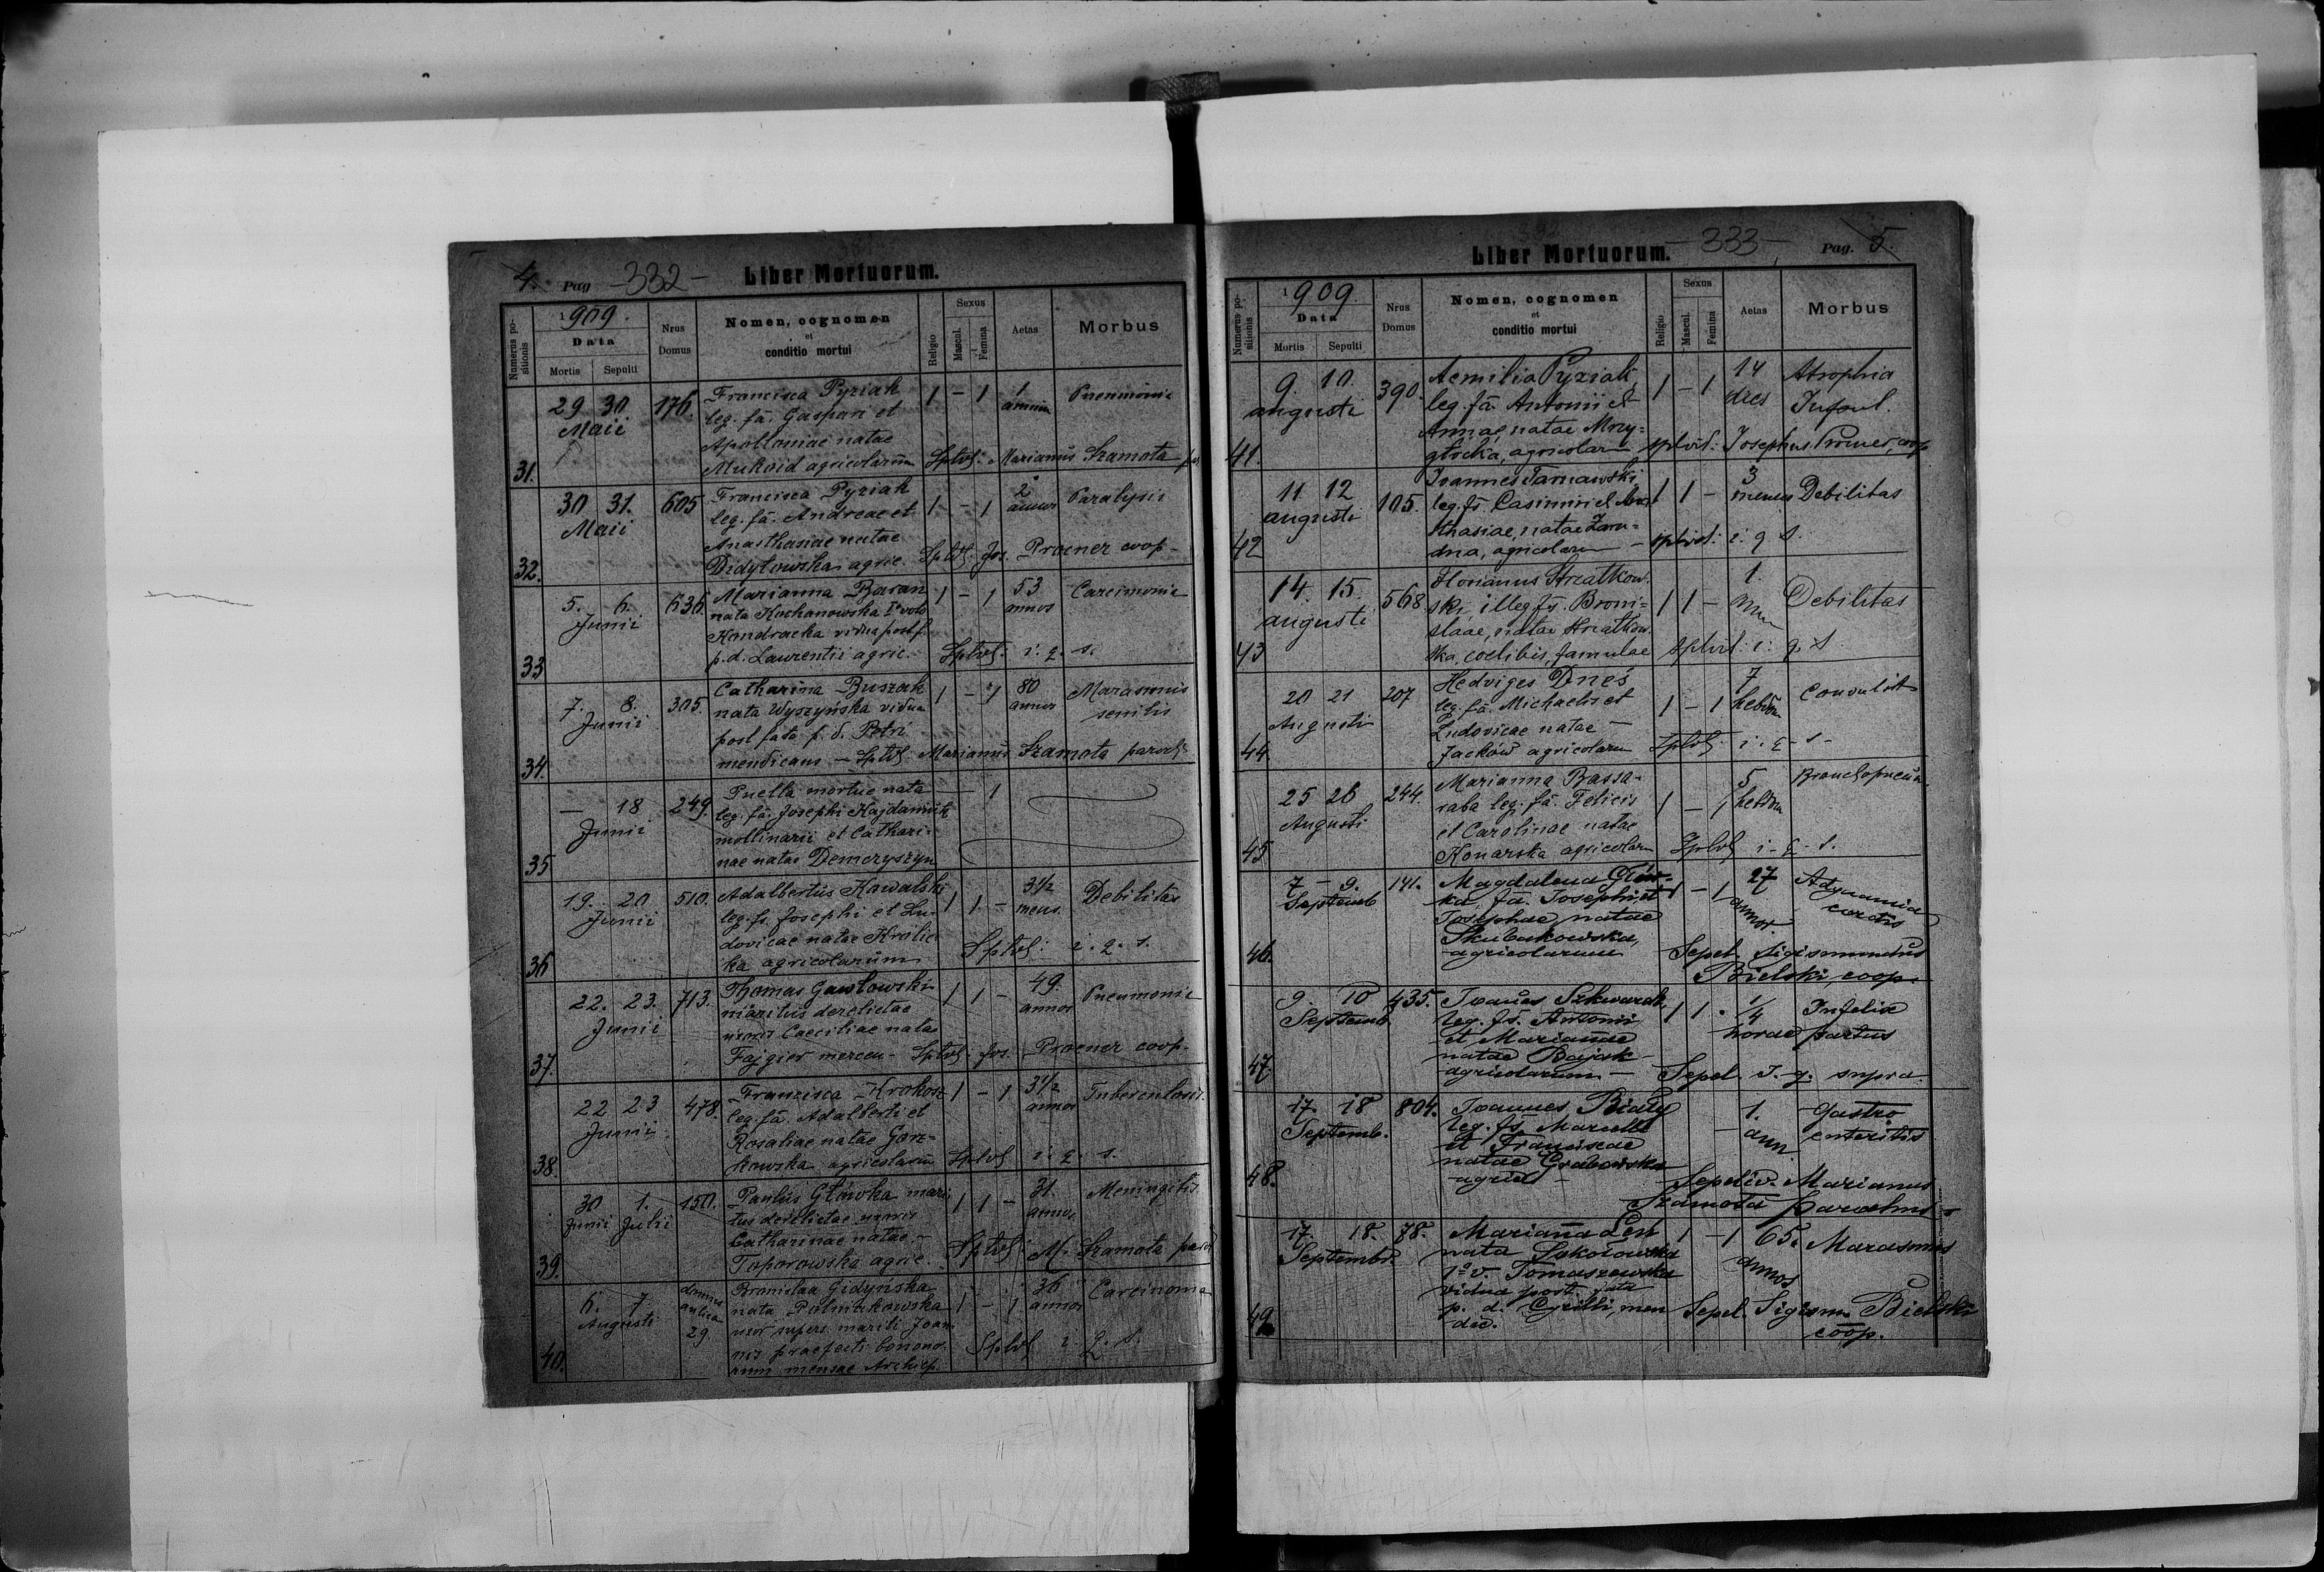 4. Pag -332- Liber Mortuorum.
Numerus positionis
1909.
Data
Mortis Sepulti
Nrus Domus
Nomen, cognomen
et
conditio mortui
Religio
Sexus
Mascul. Femina
Aetas
Morbus
29 30. 176. Francisca Pyziak 1 - 1 1 Pneumonia
Maii leg. fa. Gaspari et
Apolloniae natae
31. Mukoid agricolarum Sptvl: Marianus Szamota
30 31. 605 Francisca Pyziak 1 - 1 2 Paralysis
Maii leg. fa. Andreae et annor
Anasthasiae natae
32. Didyłowska agric. Sptvl: Jos. Proener coop-
5. 6. 636. Marianna Baran 1 - 1 53
Junii nata Kochanowska Iº voto annos
Kondracka vidua post f.
33 p. d. Laurentii agric. Sptvl: i. q. s.
7. 8. 305. Catharina Buszak 1 - 1 80 Marasmus
Junii nata Wyszyńska vidua annor senilis
post fata p. d. Petri
34. mendicans - Sptvl: Marianus Szamota parochs
- 18 249. Puella mortue nata - 1
Junii leg. fa. Josephi Hajdamik
mollinarii et Cathari-
35 nae natae Demeryszyn
19. 20 510. Adalbertus Kowalski 1 1 - 3 1/2 Debilitas
Junii leg. fs. Josephi et Lu- mens.
dovicae natae Krolic-
36 ka agricolarum Sptvl: i. q. s.
22. 23. 713. Thomas Gawłowski 1 1 - 49. Pneumonia
Junii maritus derelictae annos
uxoris Caeciliae natae
37. Fajgier mercen- Sptvl: Jos. Proener coop-
22 23 478. Francisca Krokosz 1 - 1 3 1/2 Tuberculosis.
Junii leg. fa. Adalberti et annor
Rosaliae natae Gorz-
38. kowska agricolarum Sptvl i. q. s.
30 1. 150. Paulus Główka mari 1 1 - 31. Meningitis
Junii Julii tus derelictae uxoris annos
Catharinae natae -
39. Toporowska agric. Sptvl: M. Szamota
6. 7. domus Bronislaa Gidyńska 1 - 1 36 Carcinoma
Augusti aulica nata Polniakowska annor
29 uxor supers. mariti Joan-
nis praefecti bonono- Sptvl i. q. s.
40. rum mensae Archiep.
Liber Mortuorum. -333- Pag. 5.
Numerus positionis
1909.
Data
Mortis Sepulti
Nrus Domus
Nomen, cognomen
et
conditio mortui
Religio
Sexus
Mascul. Femina
Aetas
Morbus
9. 10. 390. Aemilia Pyziak, 1 - 1 14 Atrophia
augusti leg. fa. Antonii et dies Infant.
Annae, natae Mrzy-
41. głocka, agricolarum sptvl: Josephus Proener, coop
11 12 105. Joannes Tarnawski, 1 1 - 3 Debilitas
augusti leg. fs. Casimiri et Anas menses
thasiae, natae Zaru-
42 dna, agricolarum - sptvl: i. q. s.
14. 15. 568 Florianus Strzatkow- 1 1 - 1. Debilitas
augusti ski, illeg. fs. Broni- ann
slaae, natae Strzatkow-
43 ska, coelibis, famulae sptvl: i: q s.
20 21 207 Hedviges Dneś 1 - 1 7
Augusti leg. fa. Michaelis et hebdom
Ludovicae natae -
44. Jacków agricolarum Sptvl: i. q. s.
25 26 244. Marianna Bassa- 1 - 1 5
Augusti raba leg. fa. Felicis hebdom
et Carolinae natae
45 Konarska agricolarum Sptvl i. q. s.
7 - 9. 141. Magdalena Głów- 1 - 1 27 Adynamia
Septemb ka, fa. Josephi et annor cordis
Josephae, natae
46. Skubakowska,
agricolarum Sepel. Sigismundus
Bielski, coop.
9. 10 435. Joanes Szkwarek 1 1 . 1/4 Infelix
Septemb. leg. fs. Antonii horae partus
et Mariannae
47. natae Bajak
agricolarum - Sepel. i. q. supra.
17. 18 804. Joannes Biały 1. Gastro
Septemb. leg. fs. Marcelli ann enteritis
et Franciscae
natae Grabowska
48. agric - Sepeliv. Marianus
Szamota parochus
17. 18. 78. Marianna Leń 1 - 1 65. Marasmus
Septembr. nata Sokołowska annos
1º v. Tomaszewska
vidua post fata
49 p. d. Cyrilli, men Sepel. Sigism. Bielski
dic. coop.